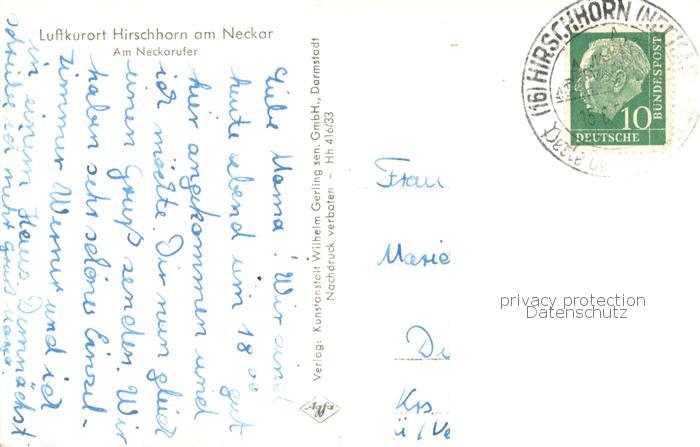 Luftkurort Hirschhorn am Neckar
Am Neckarufer
Liebe Mama! Wir sind
heute abend um 18 00 gut
hier angekommen und
ich möchte Dir nun gleich
einen Gruß senden. Wir
haben sehr schöne Einzel-
zimmer Werner und ich
in einem Haus. Demnächst
schreibe ich mehr Gruß
Verlag: Kunstanstalt Wilhelm Gerling sen. GmbH., Darmstadt
Nachdruck verboten - Hh 416/33
Agfa
(16) HIRSCHHORN (NECKAR
10
DEUTSCHE
BUNDESPOST
Frau
Marie
Krs
ü/Ve
privacy protection
Datenschutz